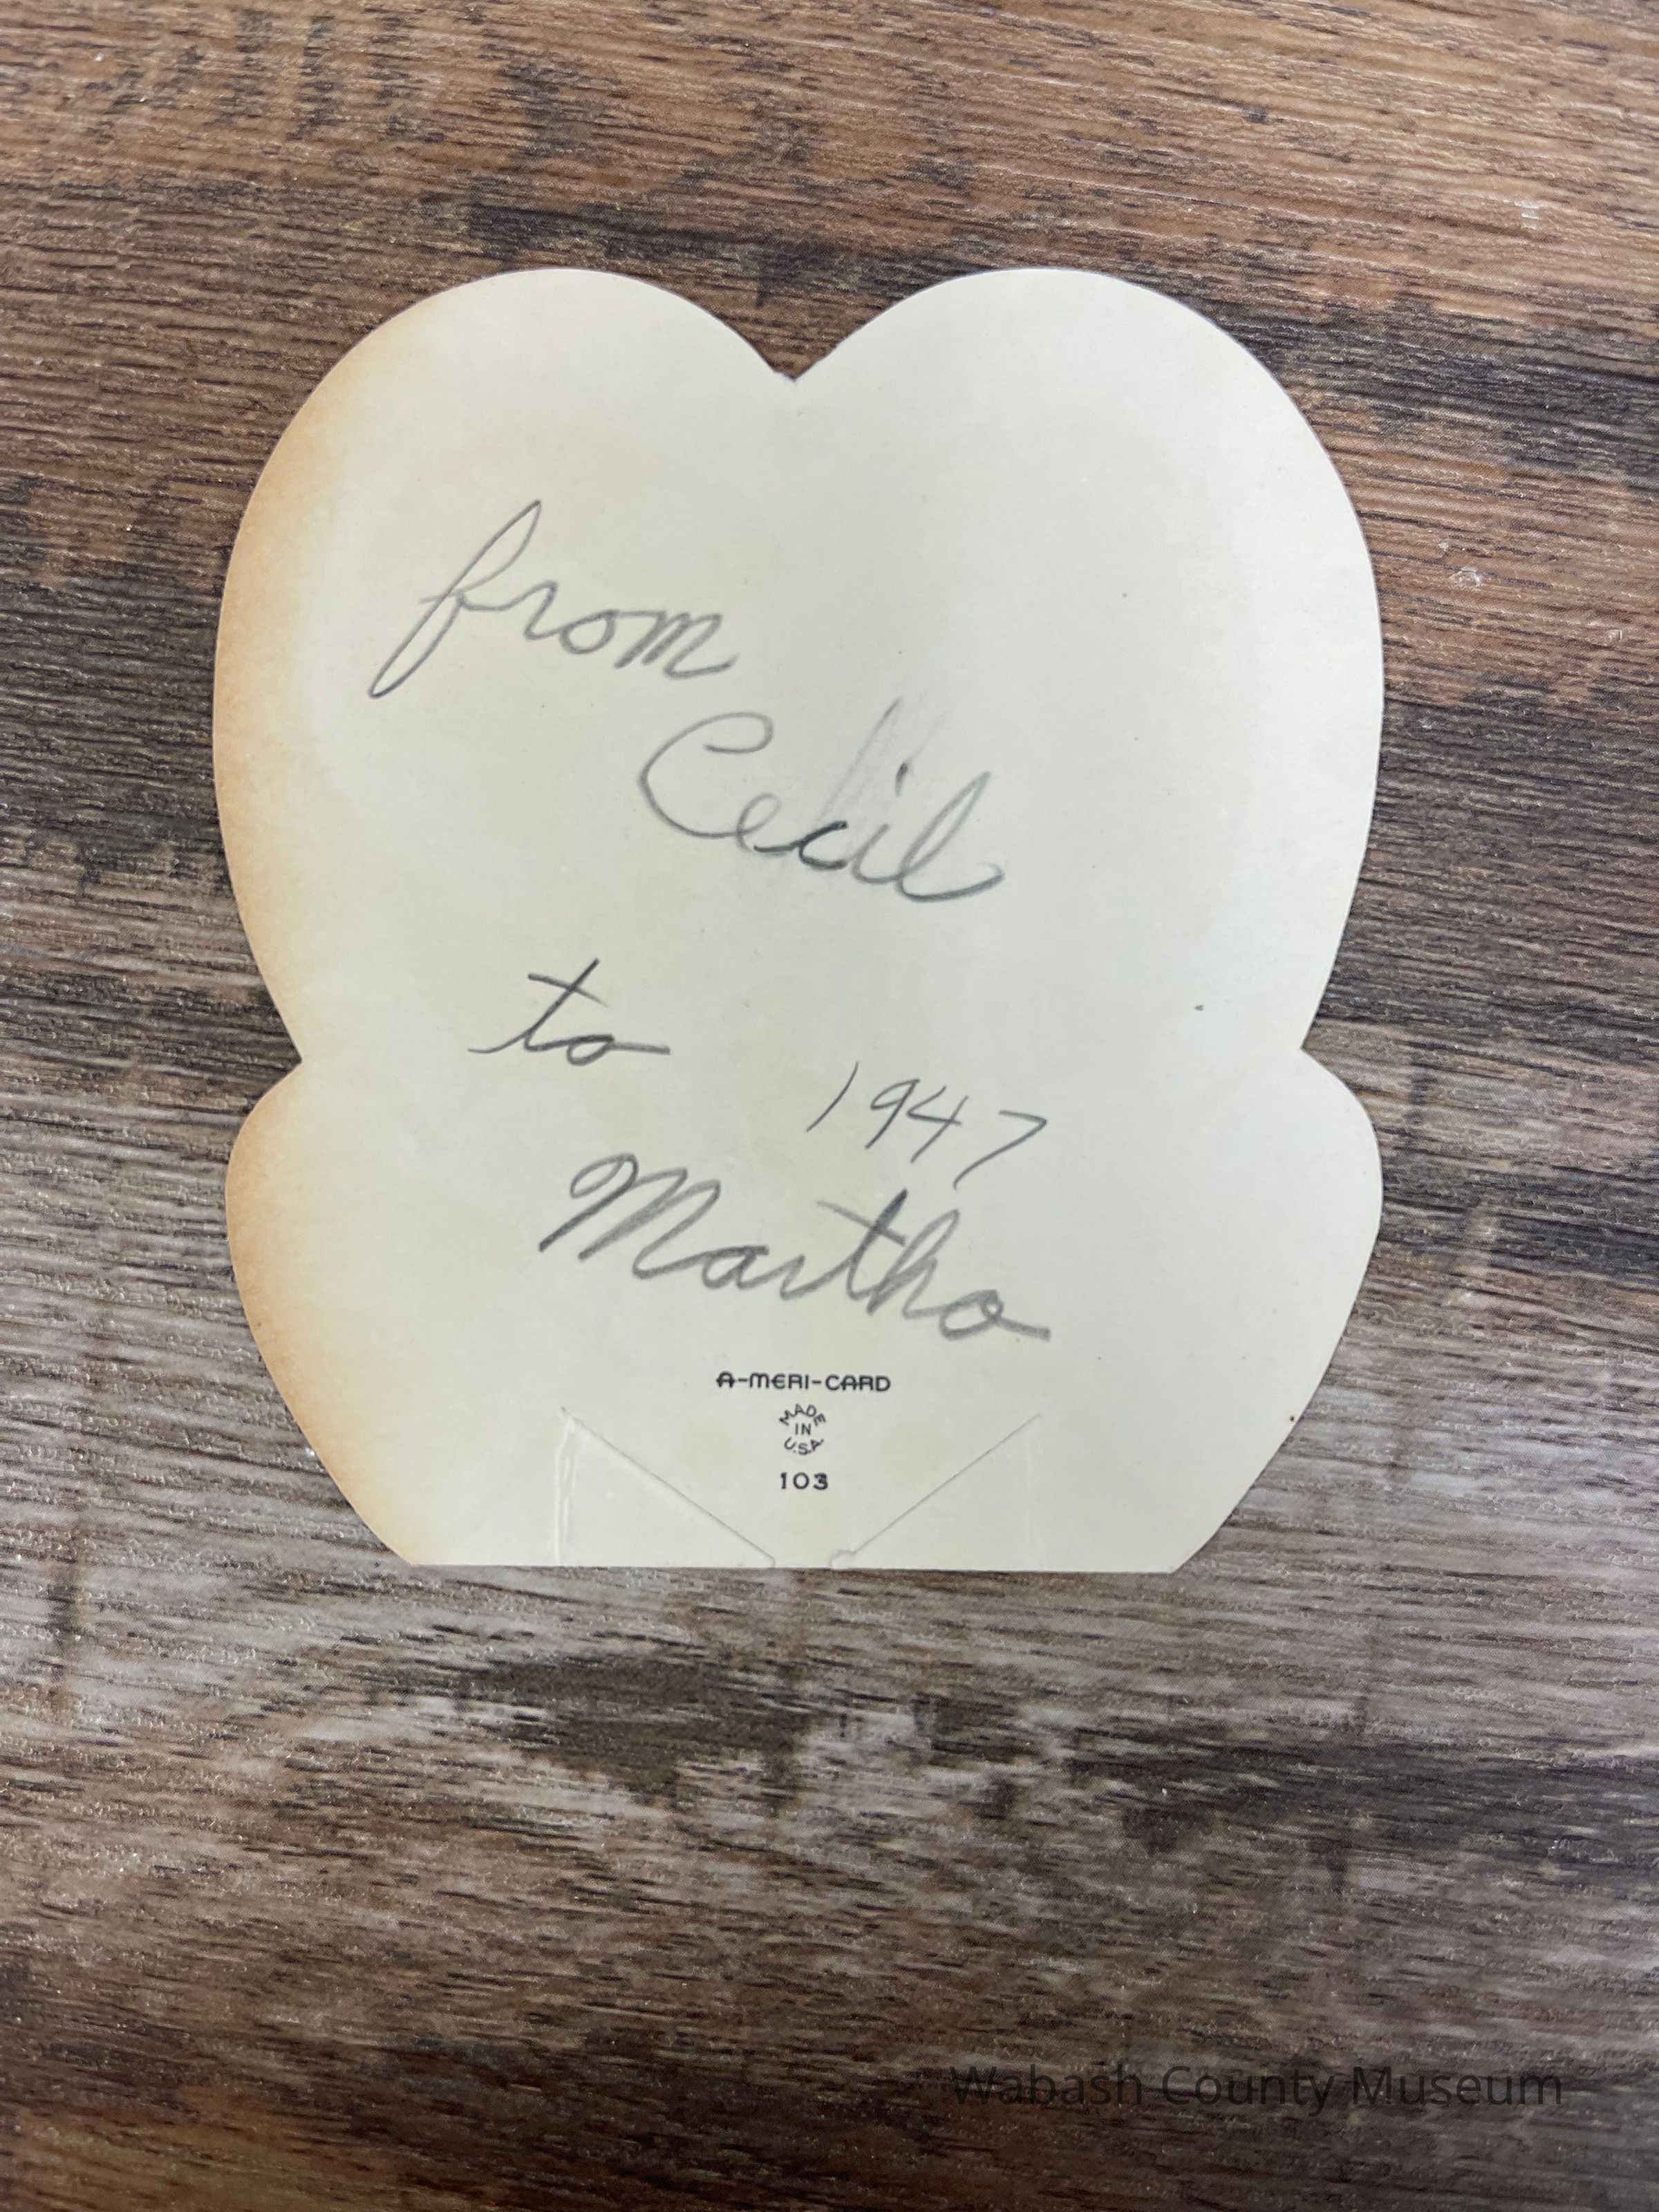 from
Cecil
to
1947
Martha
A-MERI-CARD
MADE
IN
U.S.A.
103
Wabash County Museum